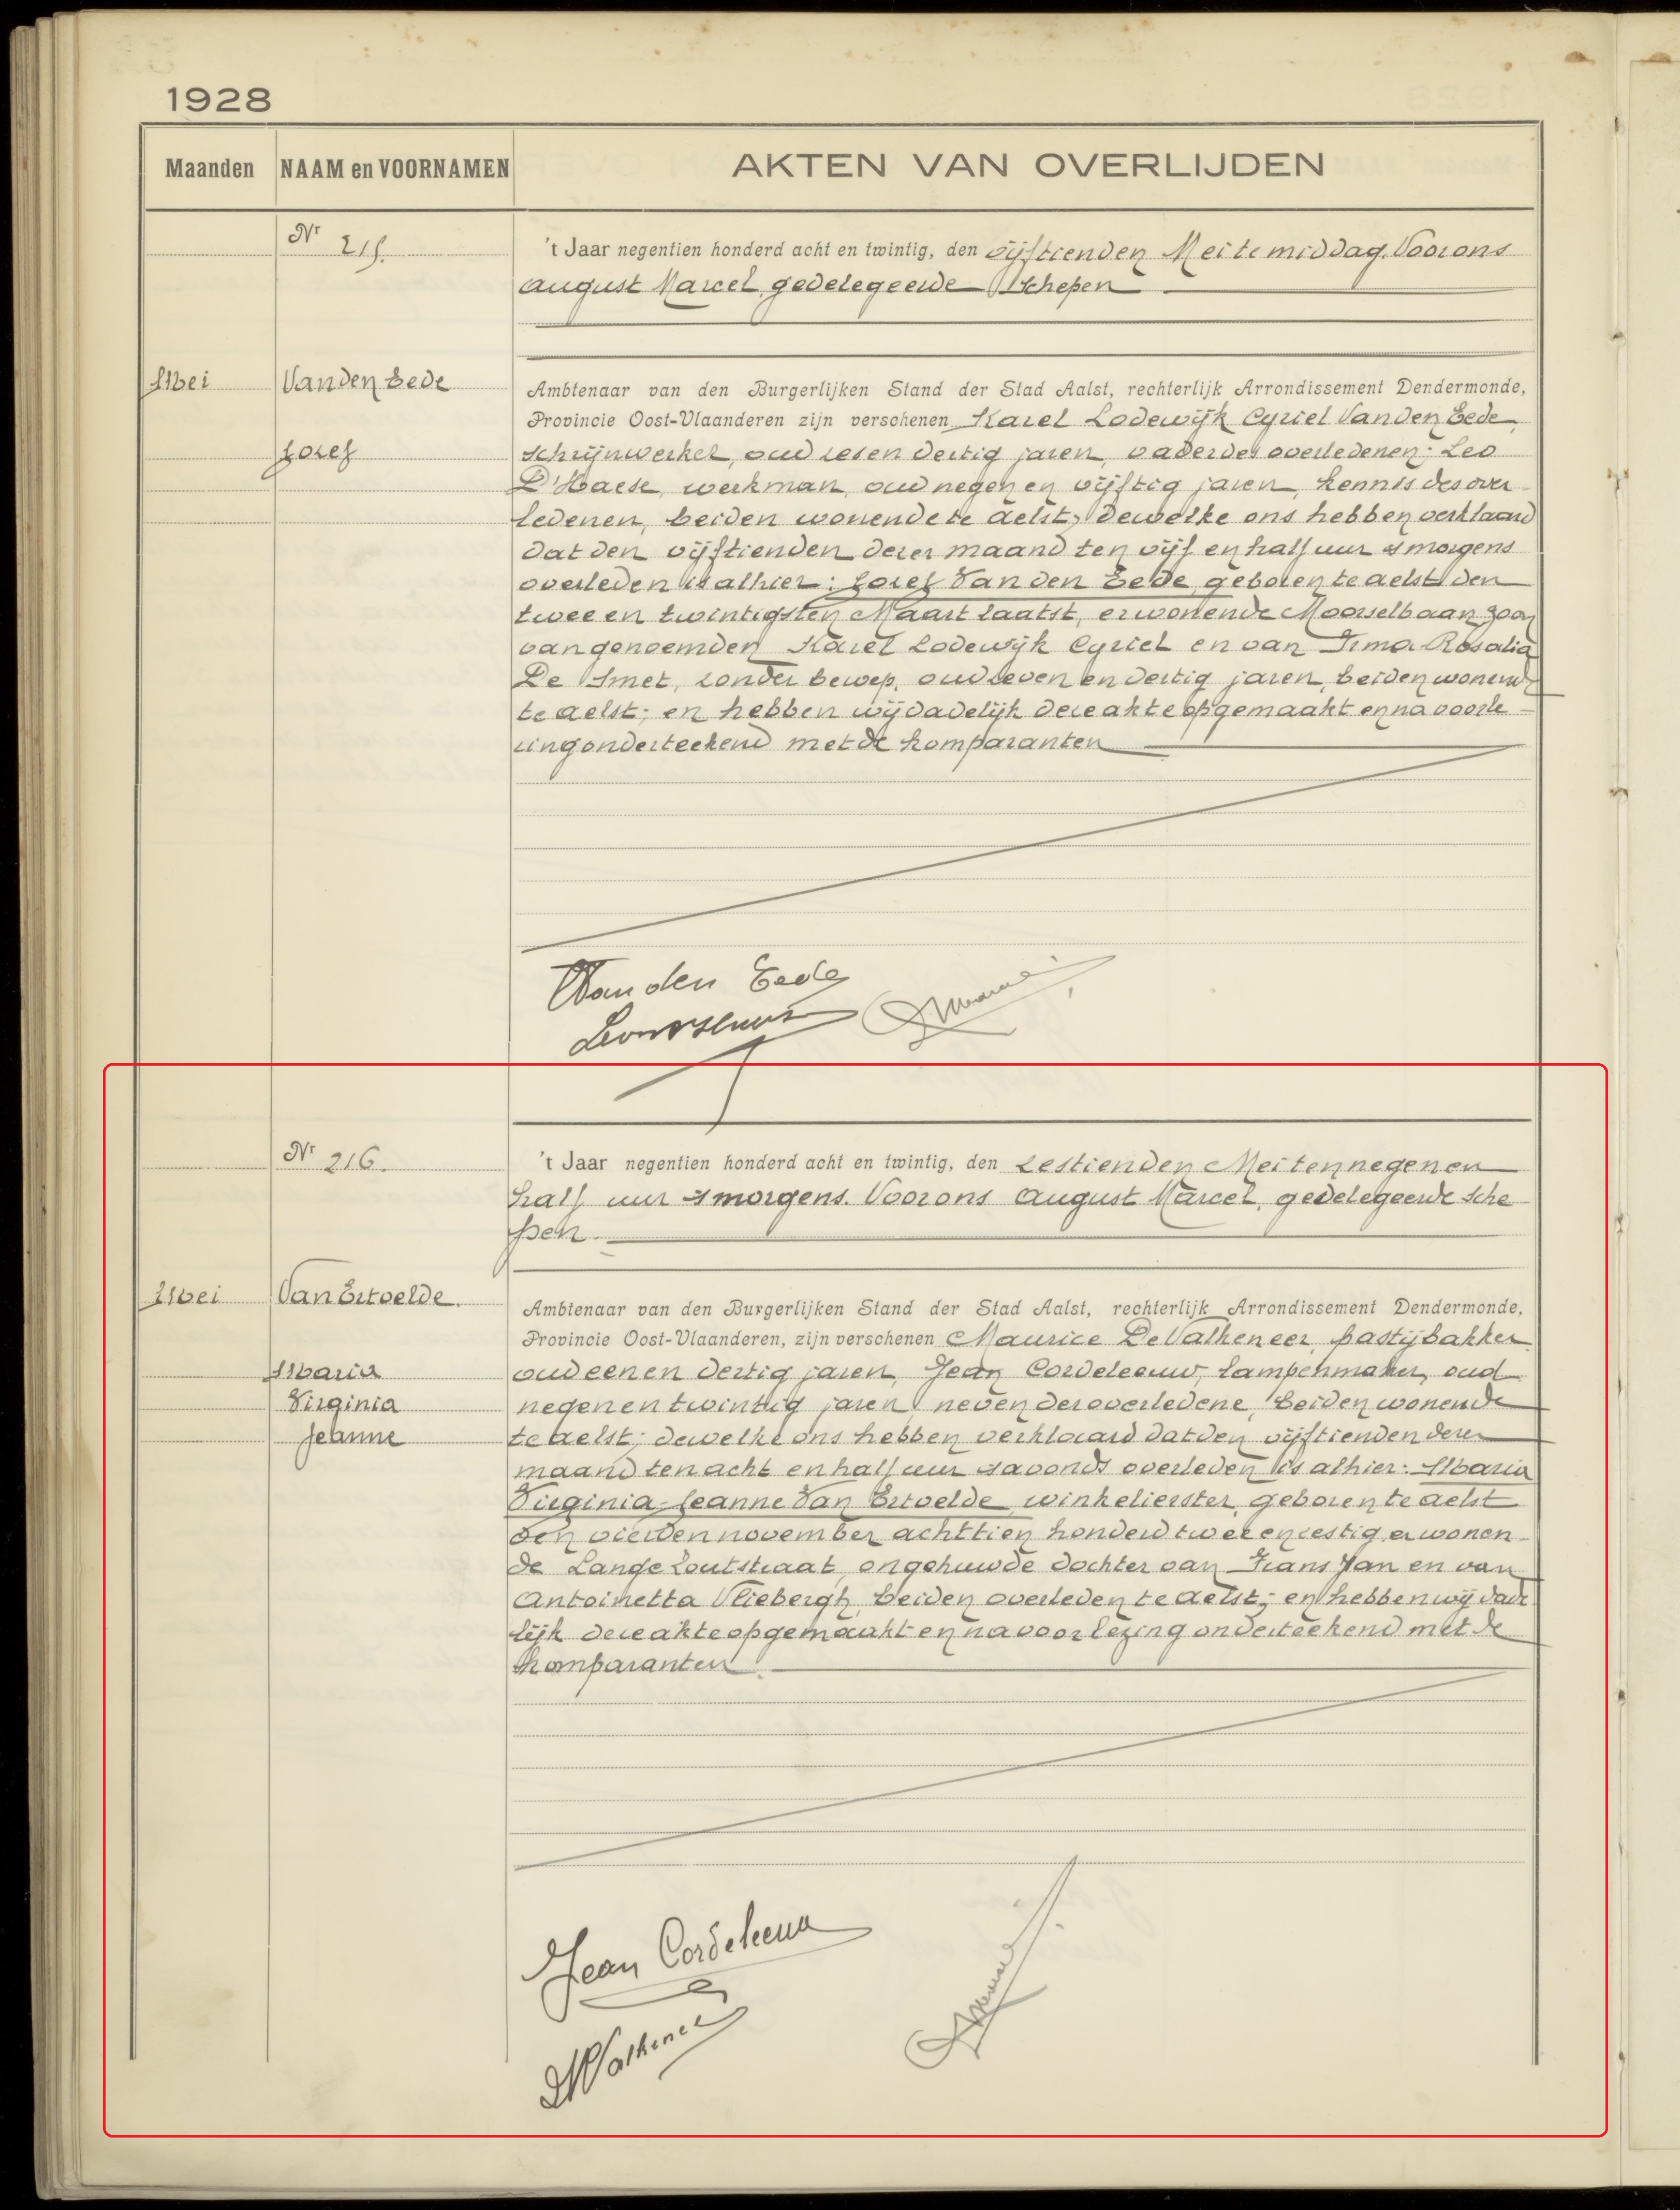 1928
Maanden NAAM en VOORNAMEN AKTEN VAN OVERLIJDEN
Nr 215.
't Jaar negentien honderd acht en twintig, den vijftienden Mei te middag. Voor ons
August Marcel, gedelegeerde Schepen
Mei Van den Eede
Jozef
Ambtenaar van den Burgerlijken Stand der Stad Aalst, rechterlijk Arrondissement Dendermonde,
Provincie Oost-Vlaanderen zijn verschenen Karel Lodewijk Cyriel Van den Eede,
schrijnwerker, oud zes en dertig jaren, vader des overledenen; Leo
D'Haese, werkman, oud negen en vijftig jaren, kennis des over-
ledenen, beiden wonende te Aelst; dewelke ons hebben verklaard
dat den vijftienden dezer maand ten vijf en half uur 's morgens
overleden is alhier: Jozef Van den Eede, geboren te Aelst den
twee en twintigsten Maart laatst, er wonende Moorselbaan, zoon
van genoemden Karel Lodewijk Cyriel en van Irma Rosalia
De Smet, zonder beroep, oud zeven en dertig jaren, beiden wonende
te Aelst; en hebben wij dadelijk deze akte opgemaakt en na voorle-
zing onderteekend met de komparanten
Van den Eede
Nr 216.
't Jaar negentien honderd acht en twintig, den zestienden Mei ten negen en
half uur 's morgens. Voor ons August Marcel, gedelegeerde Sche
pen.
Mei Van Ertvelde.
Maria
Virginia
Jeanne
Ambtenaar van den Burgerlijken Stand der Stad Aalst, rechterlijk Arrondissement Dendermonde,
Provincie Oost-Vlaanderen, zijn verschenen Maurice De Valkeneer, pastijbakker
oud een en dertig jaren, Jean Cordeleeuw, lampenmaker, oud
negen en twintig jaren, neven der overledene, beiden wonende
te Aelst; dewelke ons hebben verklaard dat den vijftienden dezer
maand ten acht en half uur 's avonds overleden is alhier: Maria
Virginia Jeanne Van Ertvelde, winkelierster, geboren te Aelst
den vierden november achttien honderd twee en zestig, er wonen-
de Lange Zoutstraat, ongehuwde dochter van Frans Jan en van
Antoinetta Vliebergh, beiden overleden te Aelst; en hebben wij dade
lijk deze akte opgemaakt en na voorlezing onderteekend met de
komparanten.
Jean Cordeleeuw